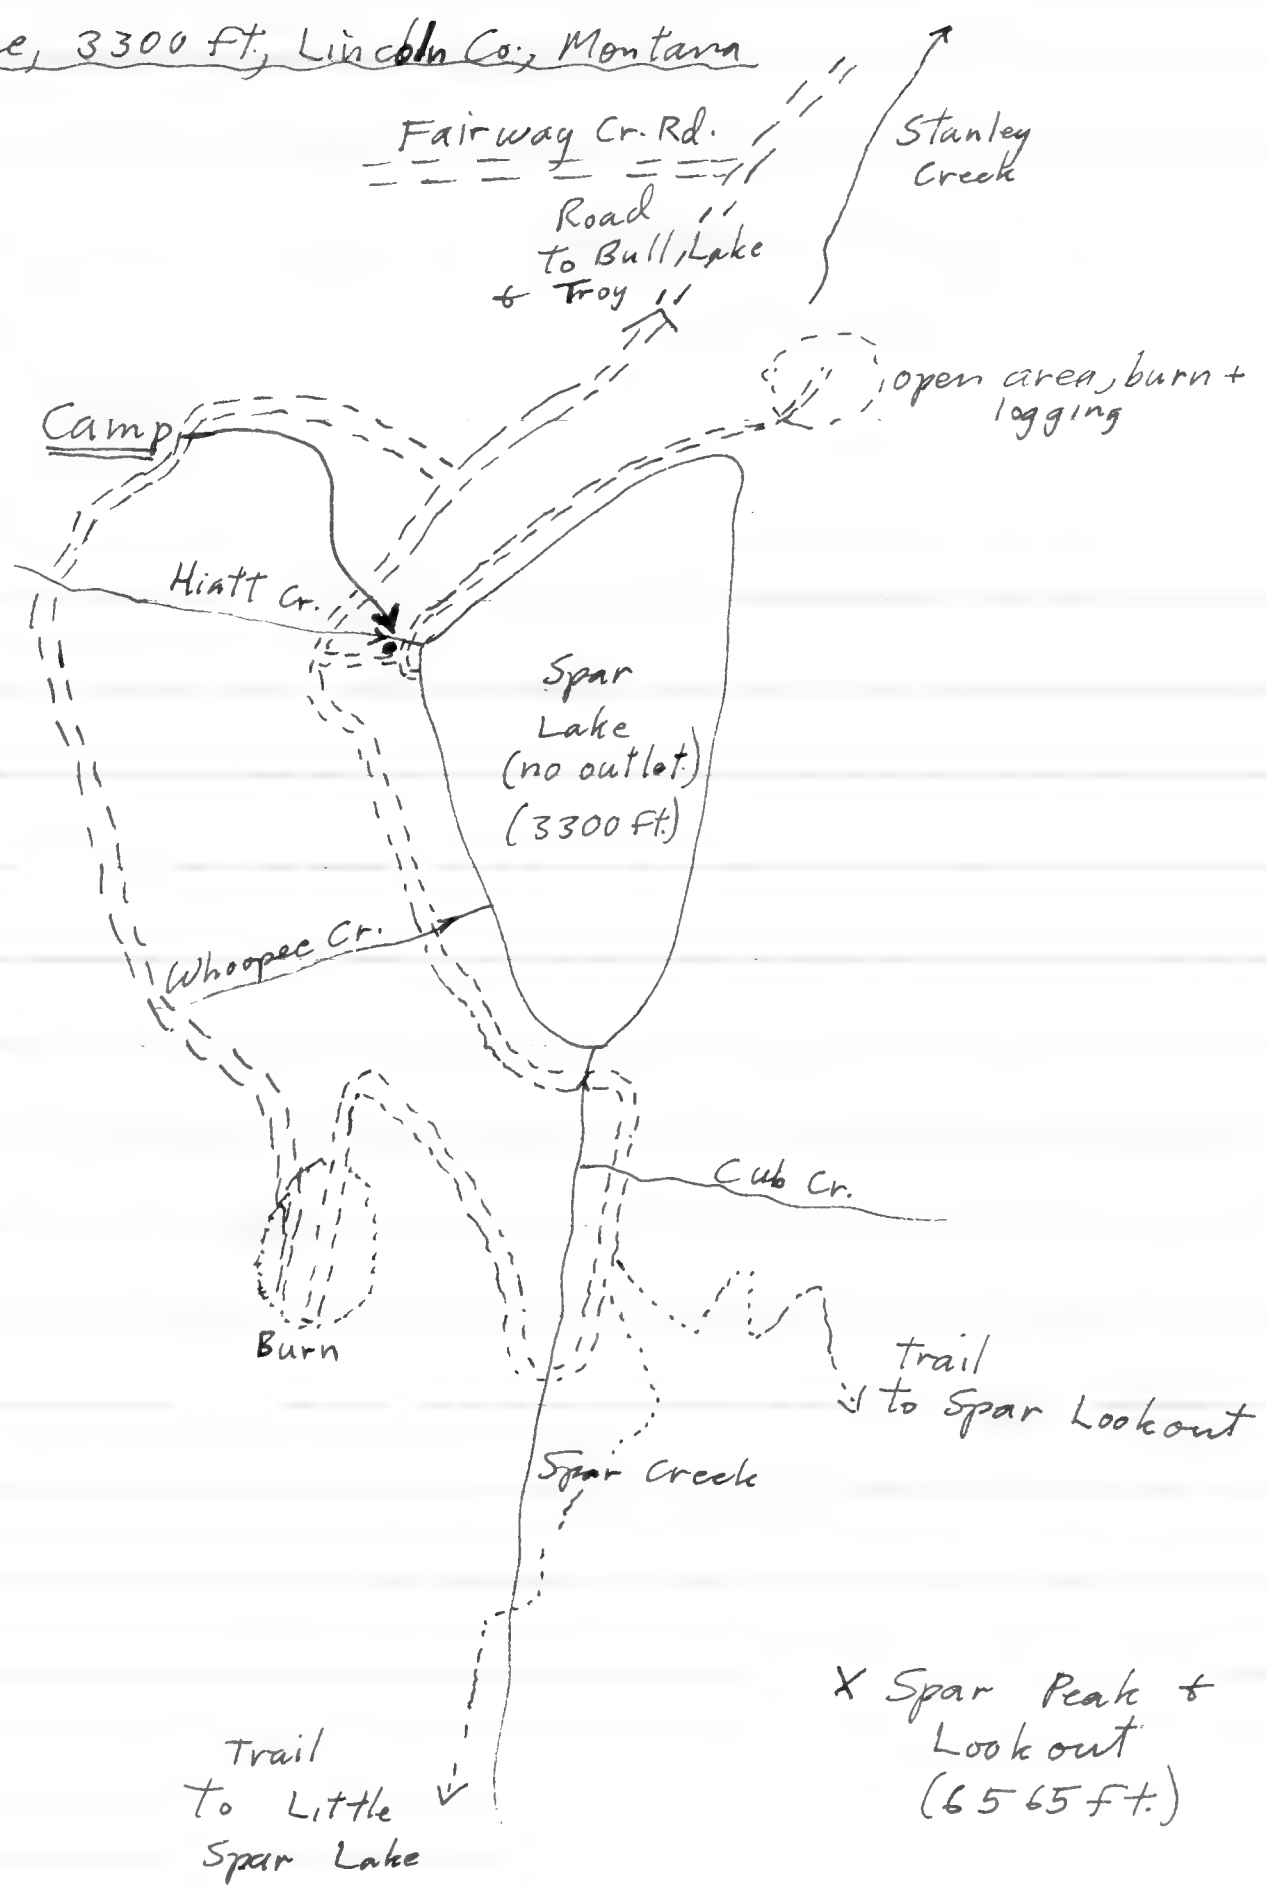 e, 3300 ft., Lincoln Co., Montana
Fairway Cr. Rd.
Stanley
Creek
Road
to Bull Lake
+ Troy
open area, burn +
logging
Camp
Hiatt Cr.
Spar
Lake
(no outlet)
(3300 ft.)
Whoopee Cr.
Cub Cr.
Burn
Trail
to Spar Lookout
Spar Creek
X Spar Peak +
Lookout
(6565 ft.)
Trail
To Little
Spar Lake